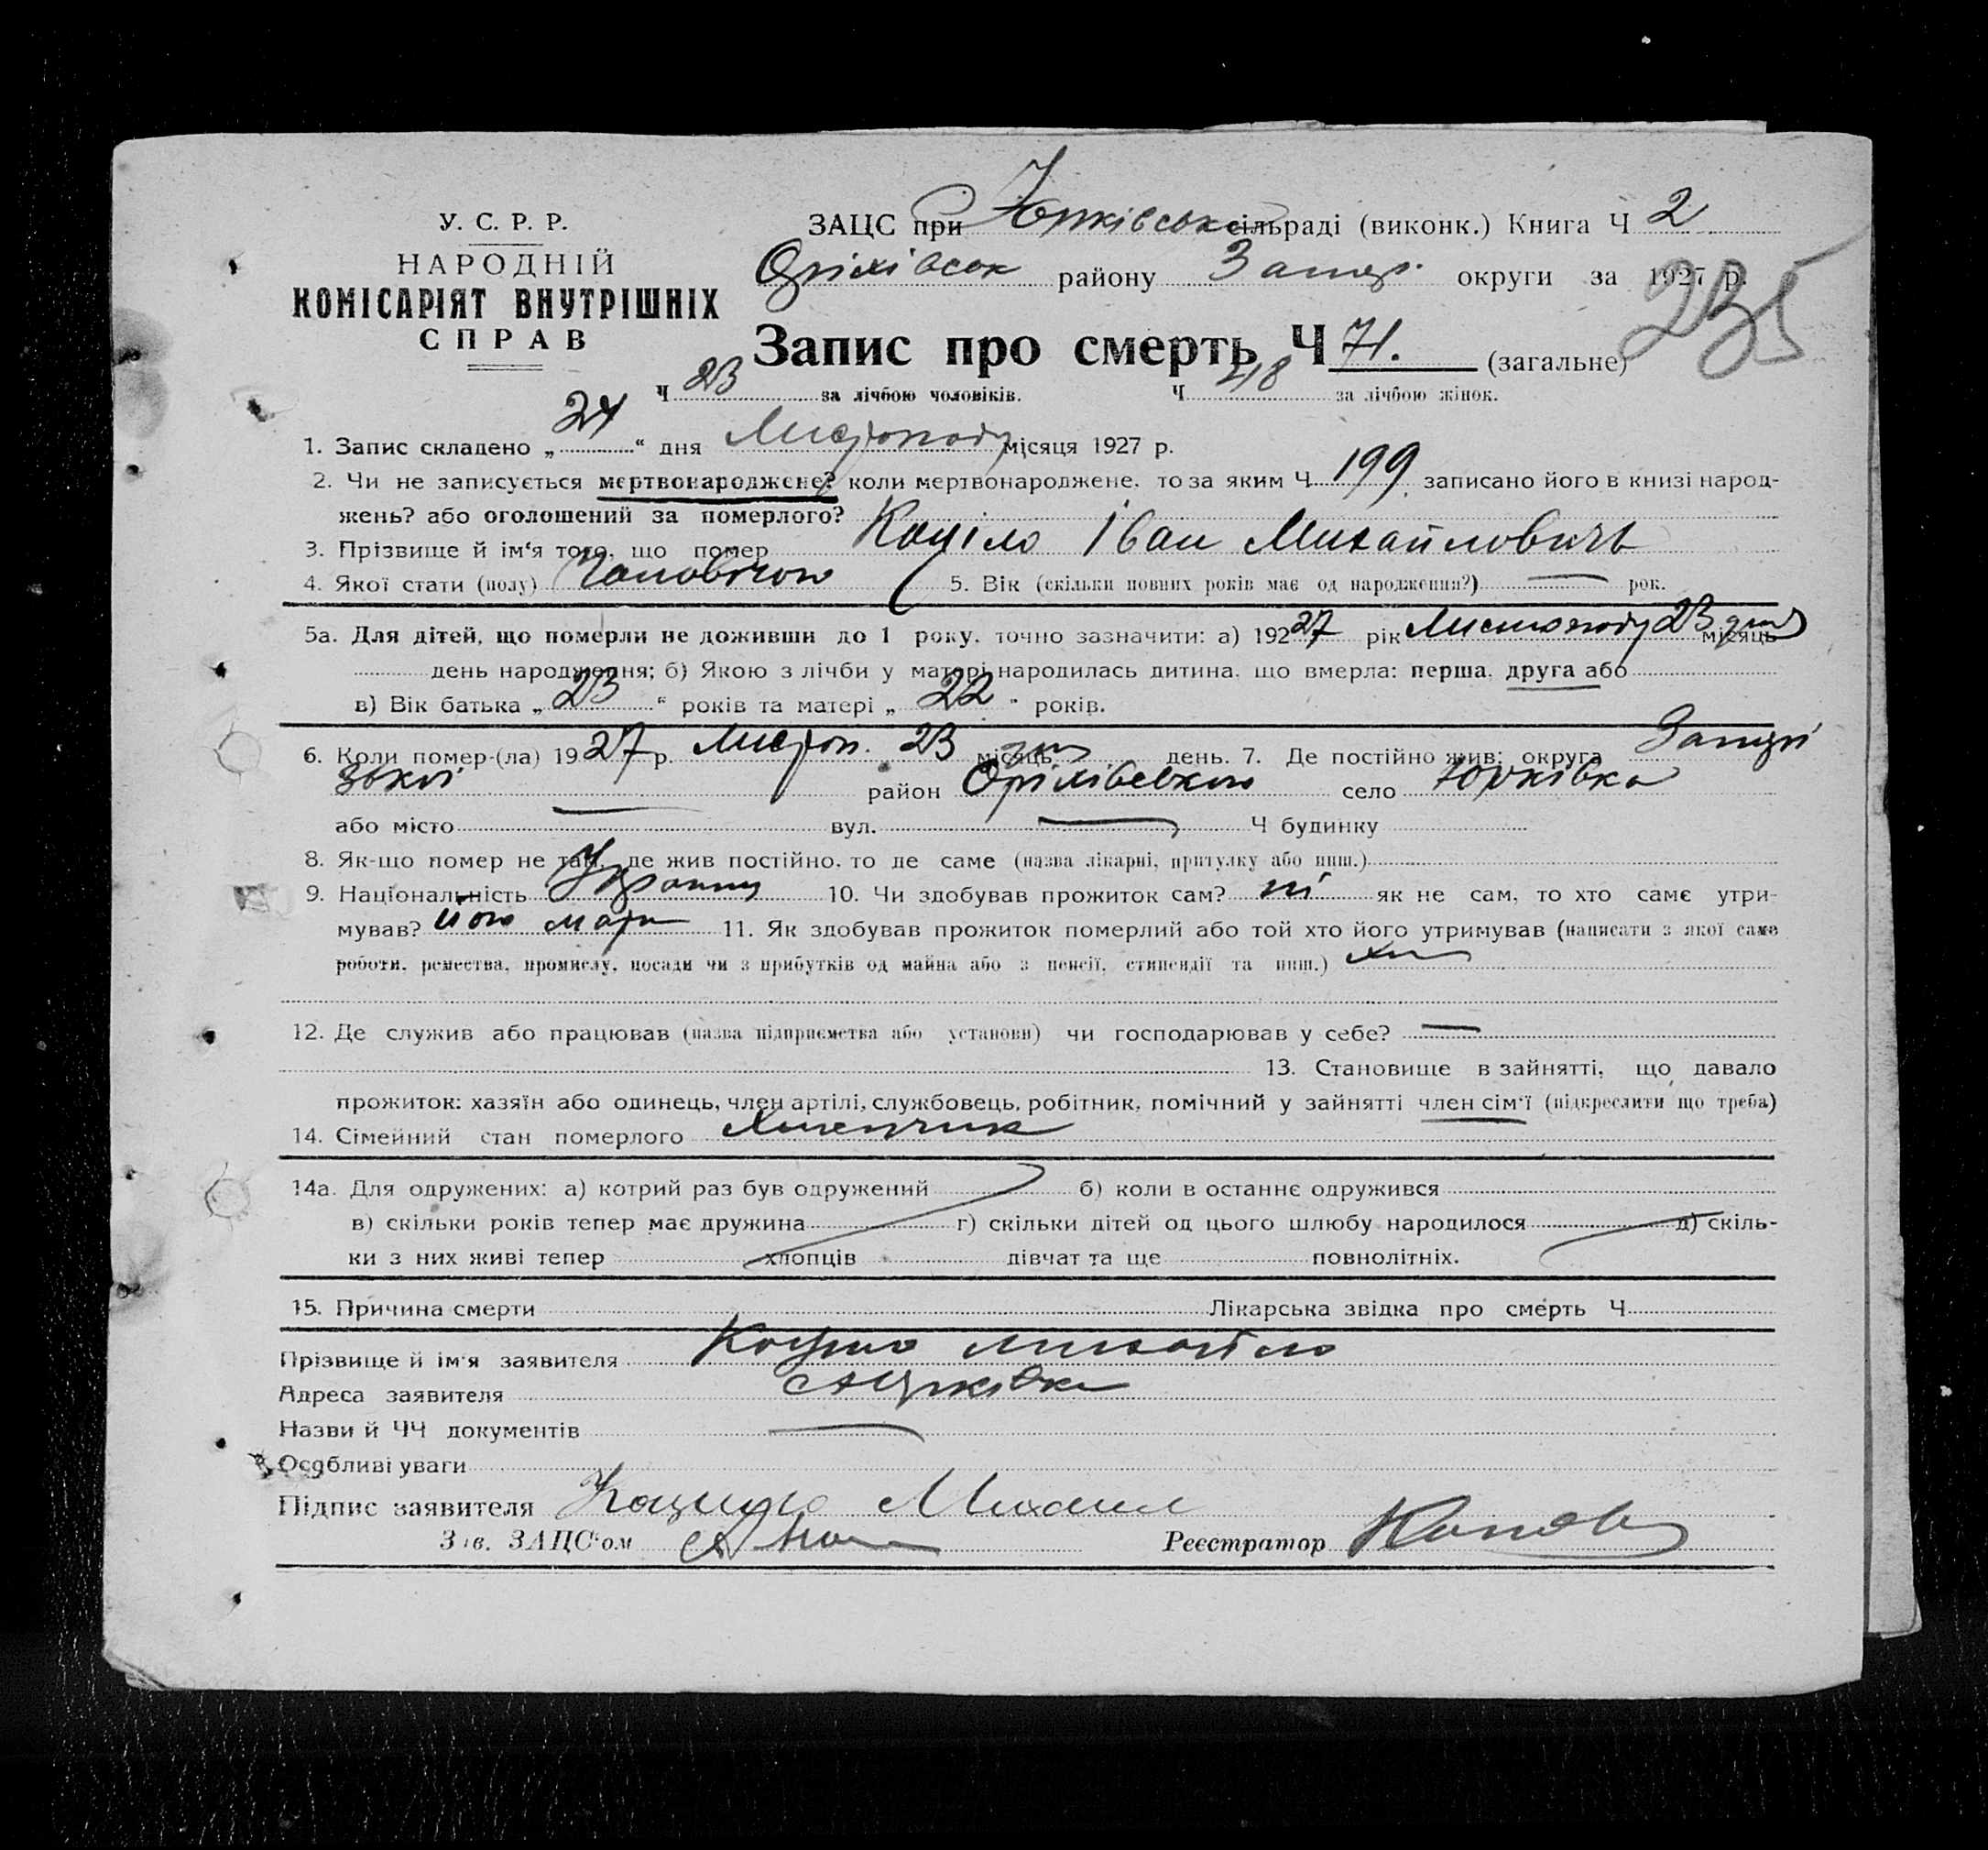 У. С. Р. Р.
НАРОДНІЙ
КОМІСАРІЯТ ВНУТРІШНІХ
СПРАВ
ЗАЦС при Юрківськ сільраді (виконк.) Книга Ч 2
Оріхівськ району Запор. округи за 1927 р.
235
Запис про смерть Ч 71. (загальне)
Ч 23 за лічбою чоловіків. Ч 48 за лічбою жінок.
1. Запис складено „ 24 “ дня Листопаду місяця 1927 р.
2. Чи не записується мертвонароджене? коли мертвонароджене, то за яким Ч 199 записано його в книзі народ-
жень? або оголошений за померлого?
3. Прізвище й ім‘я того, що помер Коціло Іван Михайловичь
4. Якої стати (полу) Чоловічою 5. Вік (скільки повних років має од народження?) — рок.
5а. Для дітей, що померли не доживши до 1 року, точно зазначити: а) 192 27 рік Листопаду 23 дня місяць
день народження; б) Якою з лічби у матері народилась дитина, що вмерла: перша, друга або
в) Вік батька „ 23 “ років та матері „ 22 “ років.
6. Коли помер-(ла) 19 27 р. Листоп. 23 дня місяць день. 7. Де постійно жив: округа Запорі
зької район Оріхівського село Юрківка
або місто — вул. — Ч будинку
8. Як-що помер не там, де жив постійно, то де саме (назва лікарні, притулку або инш.)
9. Національність 10. Чи здобував прожиток сам? ні як не сам, то хто саме утри-
мував? його мати 11. Як здобував прожиток померлий або той хто його утримував (написати з якої само
роботи, ремества, промислу, посади чи з прибутків од майна або з пенсії, стипендії та инш.)
12. Де служив або працював (назва підприємства або установи) чи господарював у себе? —
13. Становище в зайнятті, що давало
прожиток: хазяїн або одинець, член артілі, службовець, робітник, помічний у зайнятті член сім‘ї (підкреслити що треба)
14. Сімейний стан померлого
14а. Для одружених: а) котрий раз був одружений б) коли в останнє одружився
в) скільки років тепер має дружина г) скільки дітей од цього шлюбу народилося д) скіль-
ки з них живі тепер хлопців дівчат та ще повнолітніх.
15. Причина смерти Лікарська звідка про смерть Ч
Прізвище й ім‘я заявителя Коціло Михайло
Адреса заявителя
Назви й ЧЧ документів —
Особливі уваги
Підпис заявителя Коцило Михаил
Зав. ЗАЦС‘ом
Реєстратор